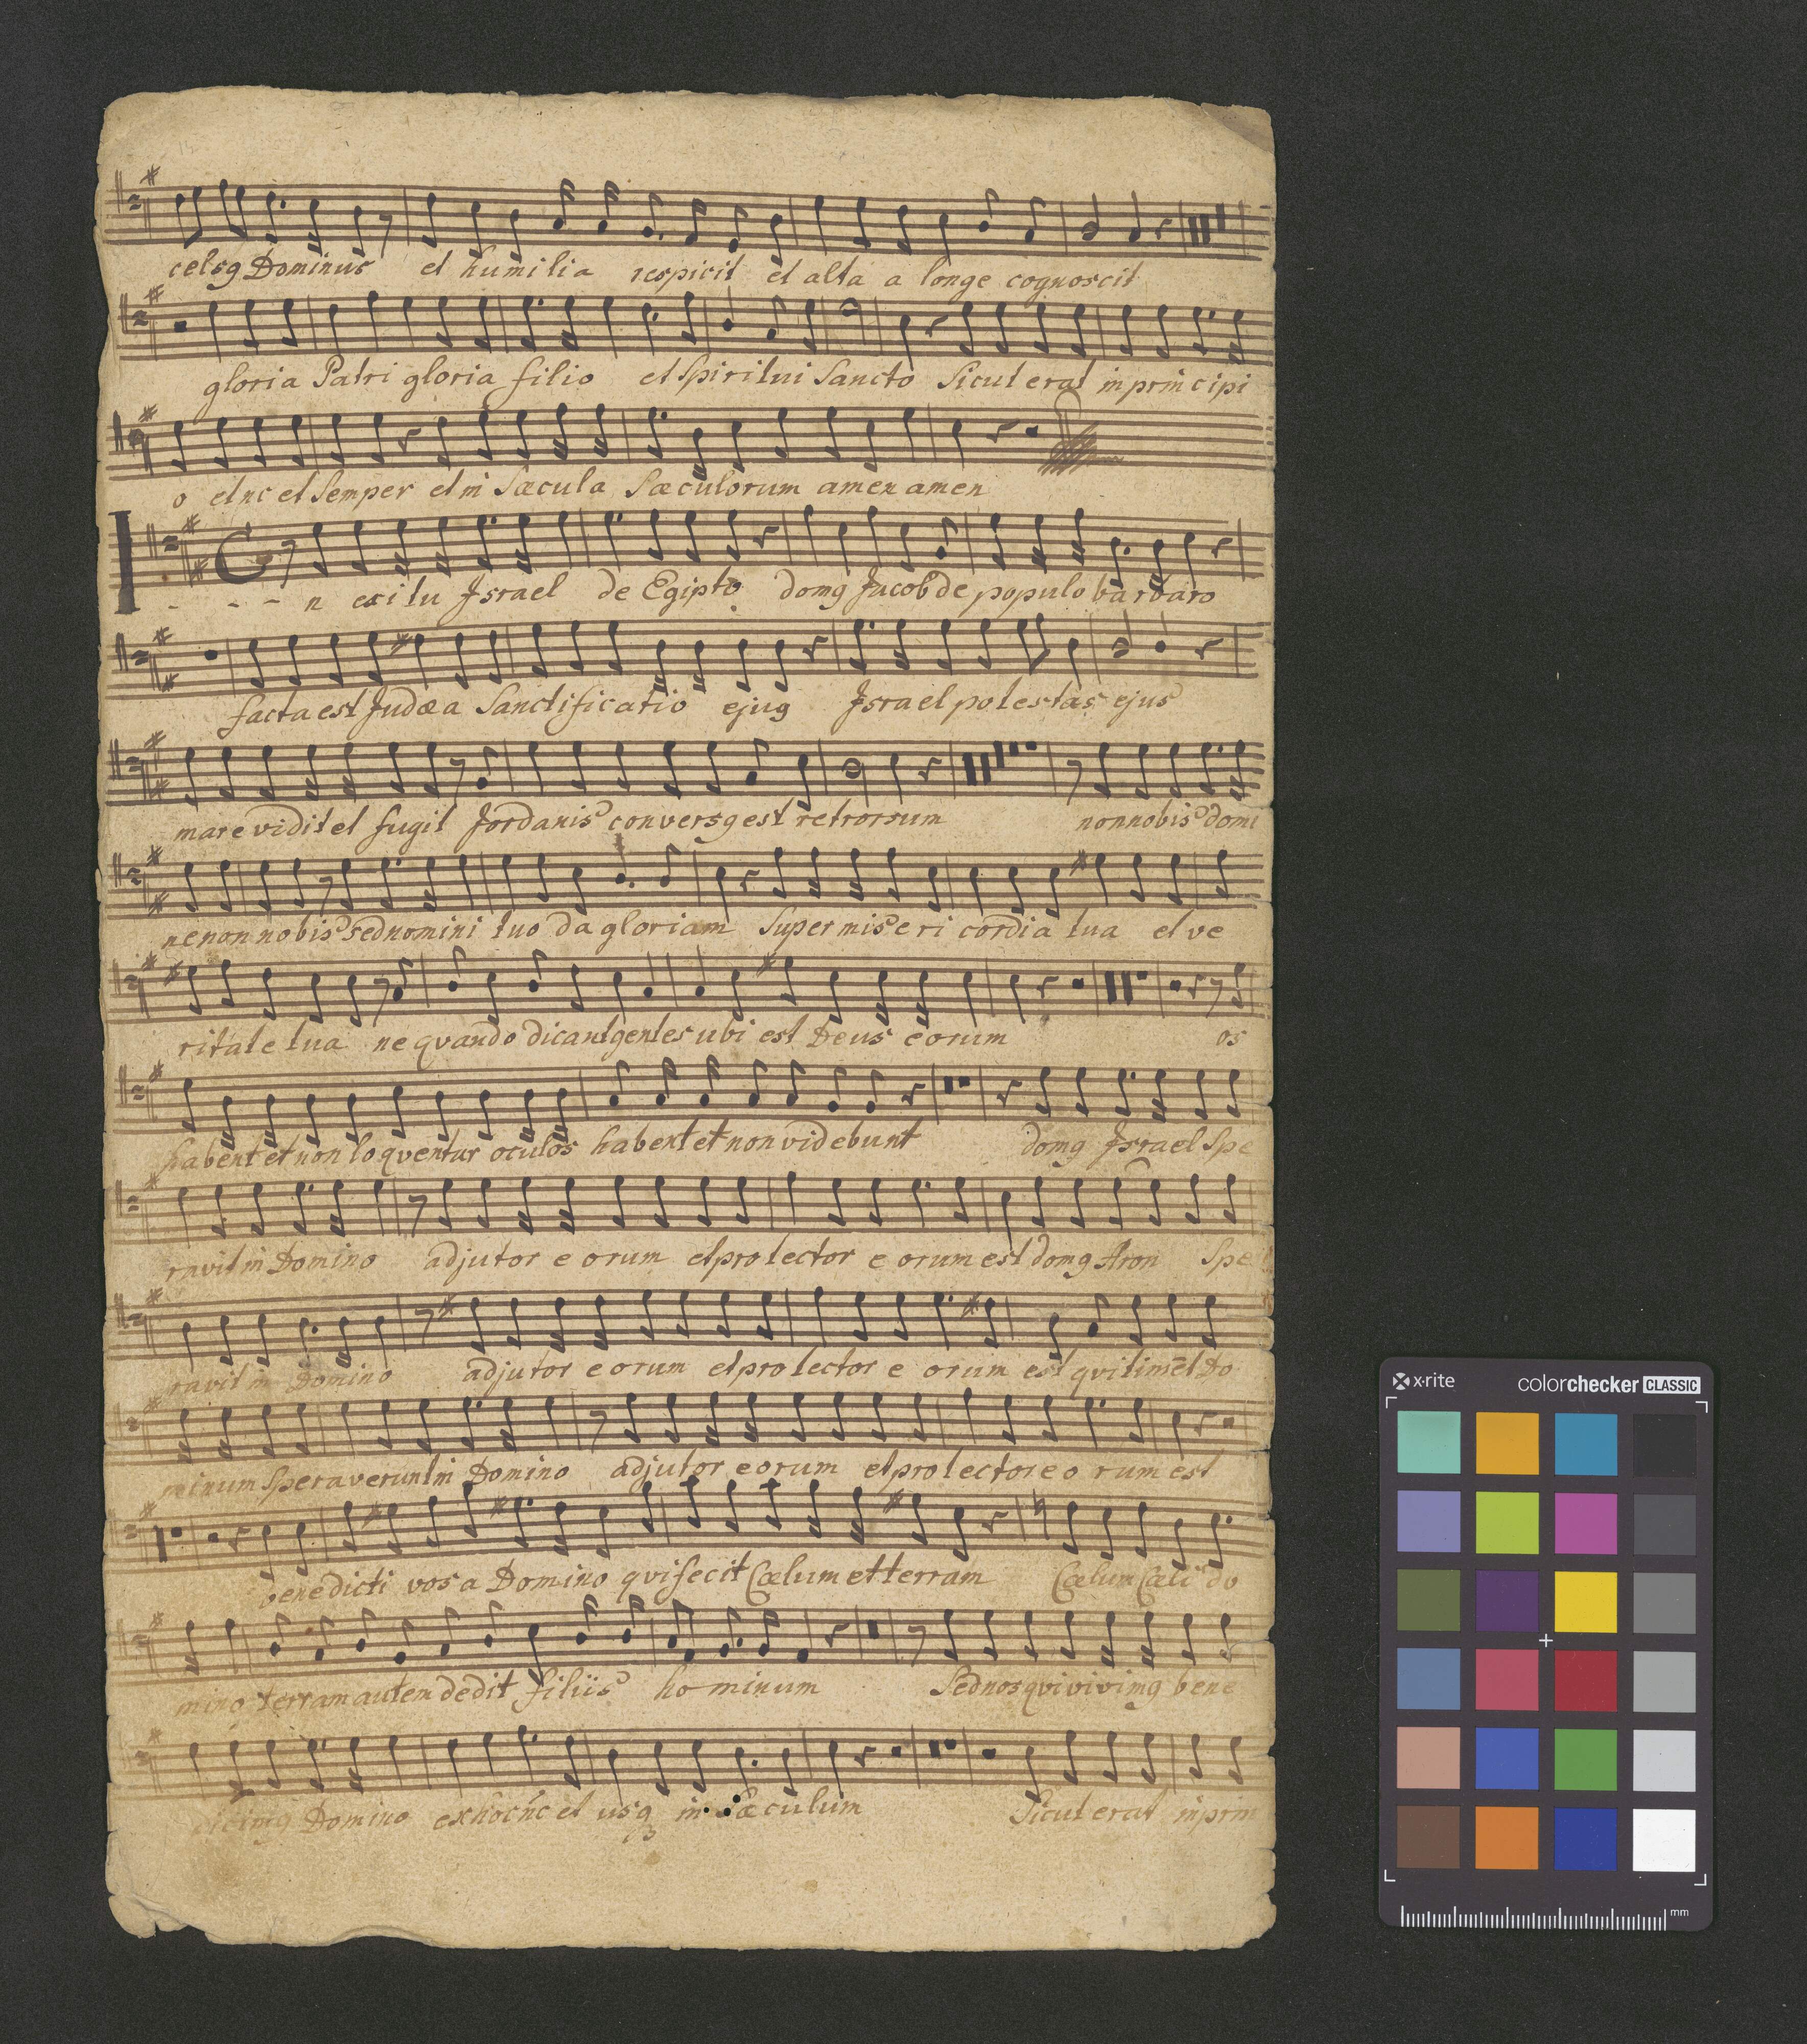 celsꝯ Dominus et humilia respicit et alta a longe cognoscit
gloria Patri gloria filio et Spiritui Sancto Sicut erat in principi
o et nc et Semper et in Sæcula Sæculorum amen amen
I - - - n exitu Israel de Egipto domꝯ Jacob de populo barbaro
facta est Judæa Sanctificatio ejuꝯ Israel potestas ejus
mare vidit et fugit Jordanis conversꝯ est retrorsum non nobis domi
ne non nobis sed nomini tuo da gloriam Super misericordia tua et ve
ritate tua ne qvando dicant gentes ubi est Deus eorum os
habent et non loqventur oculos habent et non videbunt domꝯ Israel Spe
ravit in Domino adjutor eorum et protector eorum est domꝯ Aron Spe
ravit in Domino adjutor eorum et protector eorum est qvi timēt Do
minum Speraverunt in Domino adjutor eorum et protector eorum est
benedicti vos a Domino qvi fecit Cœlum et terram Cœlum Cœli do
mino terram autem dedit filiis hominum Sed nos qvi vivimꝯ bene
dicimꝯ Domino ex hoc nc et usq in Sæculum Sicut erat in prin
x-rite colorchecker CLASSIC
mm